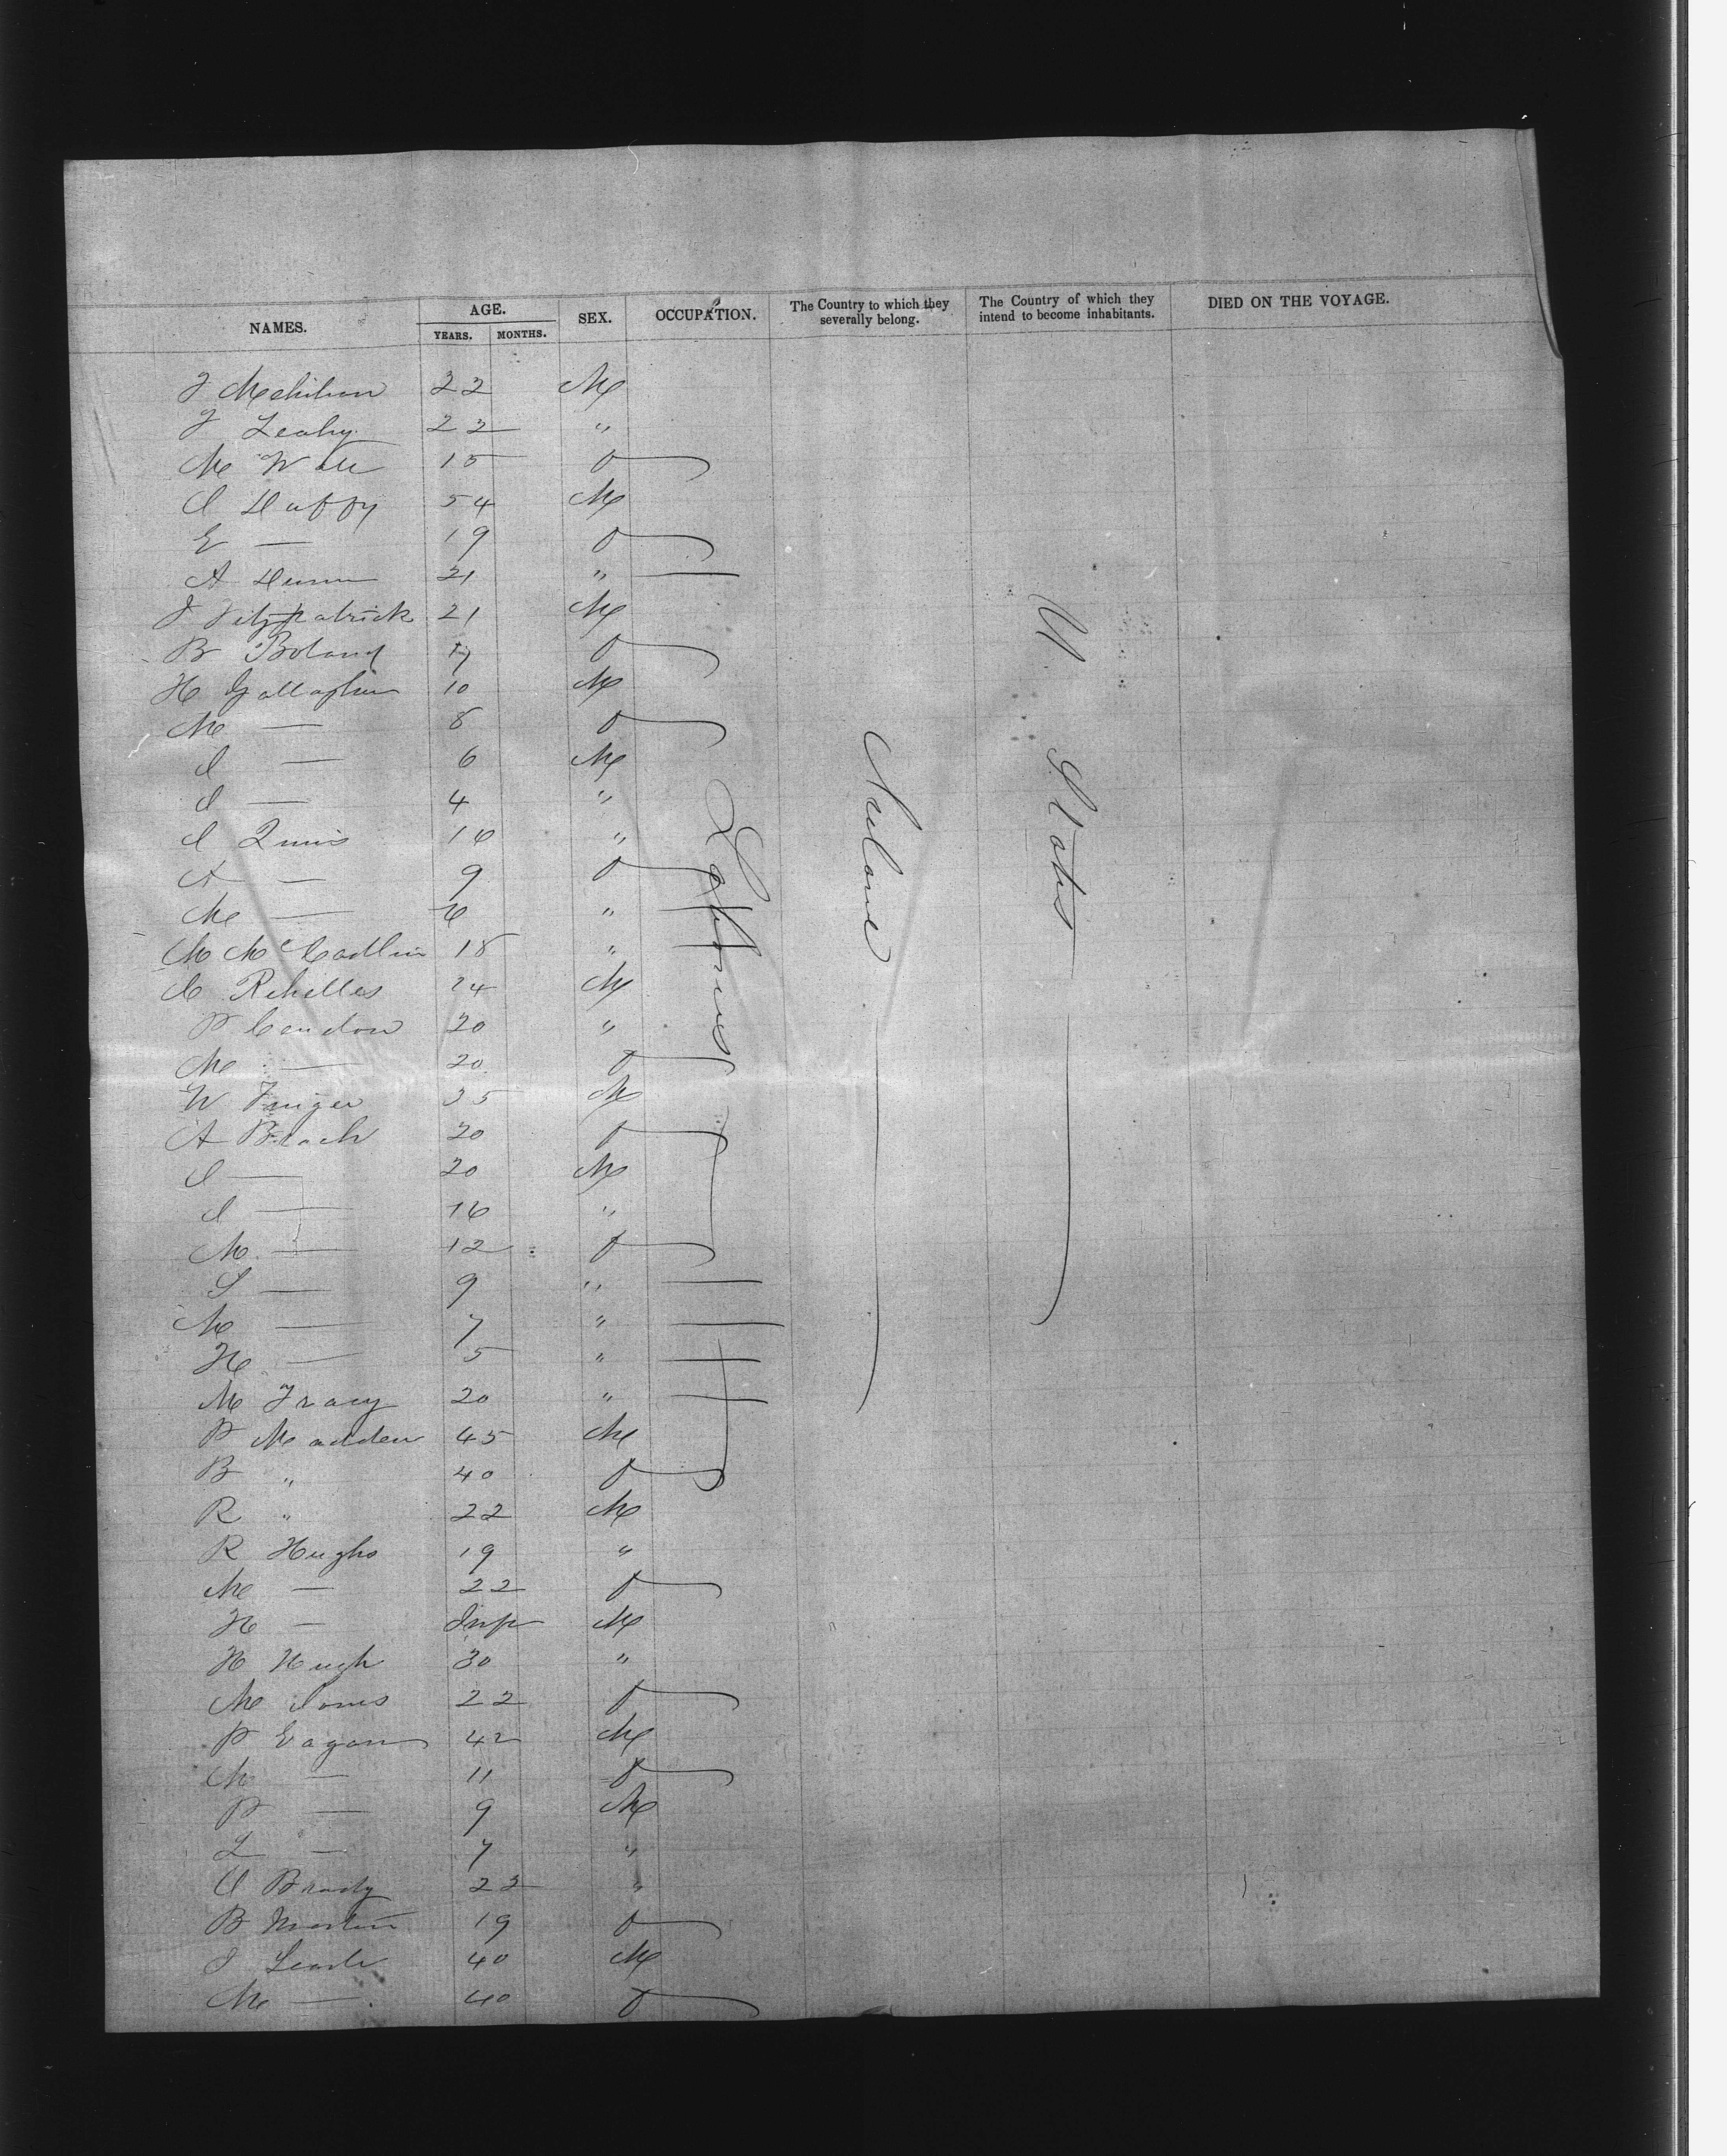 NAMES. AGE. SEX. OCCUPATION. The Country to which they severally belong. The Country of which they intend to become inhabitants. DIED ON THE VOYAGE.
YEARS. MONTHS.
J 22 M
J Leahy 22 "
M Wall 15 f
J Duffy 54 M
E — 19 f
A Dunn 21 " —
J Fitzpatrick 21 M
B Boland 17 f
H Gallagher 10 M
M — 8 f
J — 6 M
J — 4 "
J 16 "
A — 9 f
M — 6 " —
M 18 " —
24 M
P Condon 20 "
M — 20 f
W 35 M
A 20 f
J — 20 M
J — 16 "
M — 12 f
S — 9 " —
M — 7 " —
H — 5 " —
M Tracy 20 " —
P Madden 45 M
B " 40 f
R " 22 M
R Hughs 19 "
M — 22 f
H — Inf M
H Hugh 30 "
M Jones 22 f
P Eagan 42 M
M — 11 f
P — 9 M
L — 7 "
Brady 22 "
B Martin 19 f
J 40 M
M — 40 f
Laborers
Ireland
U States